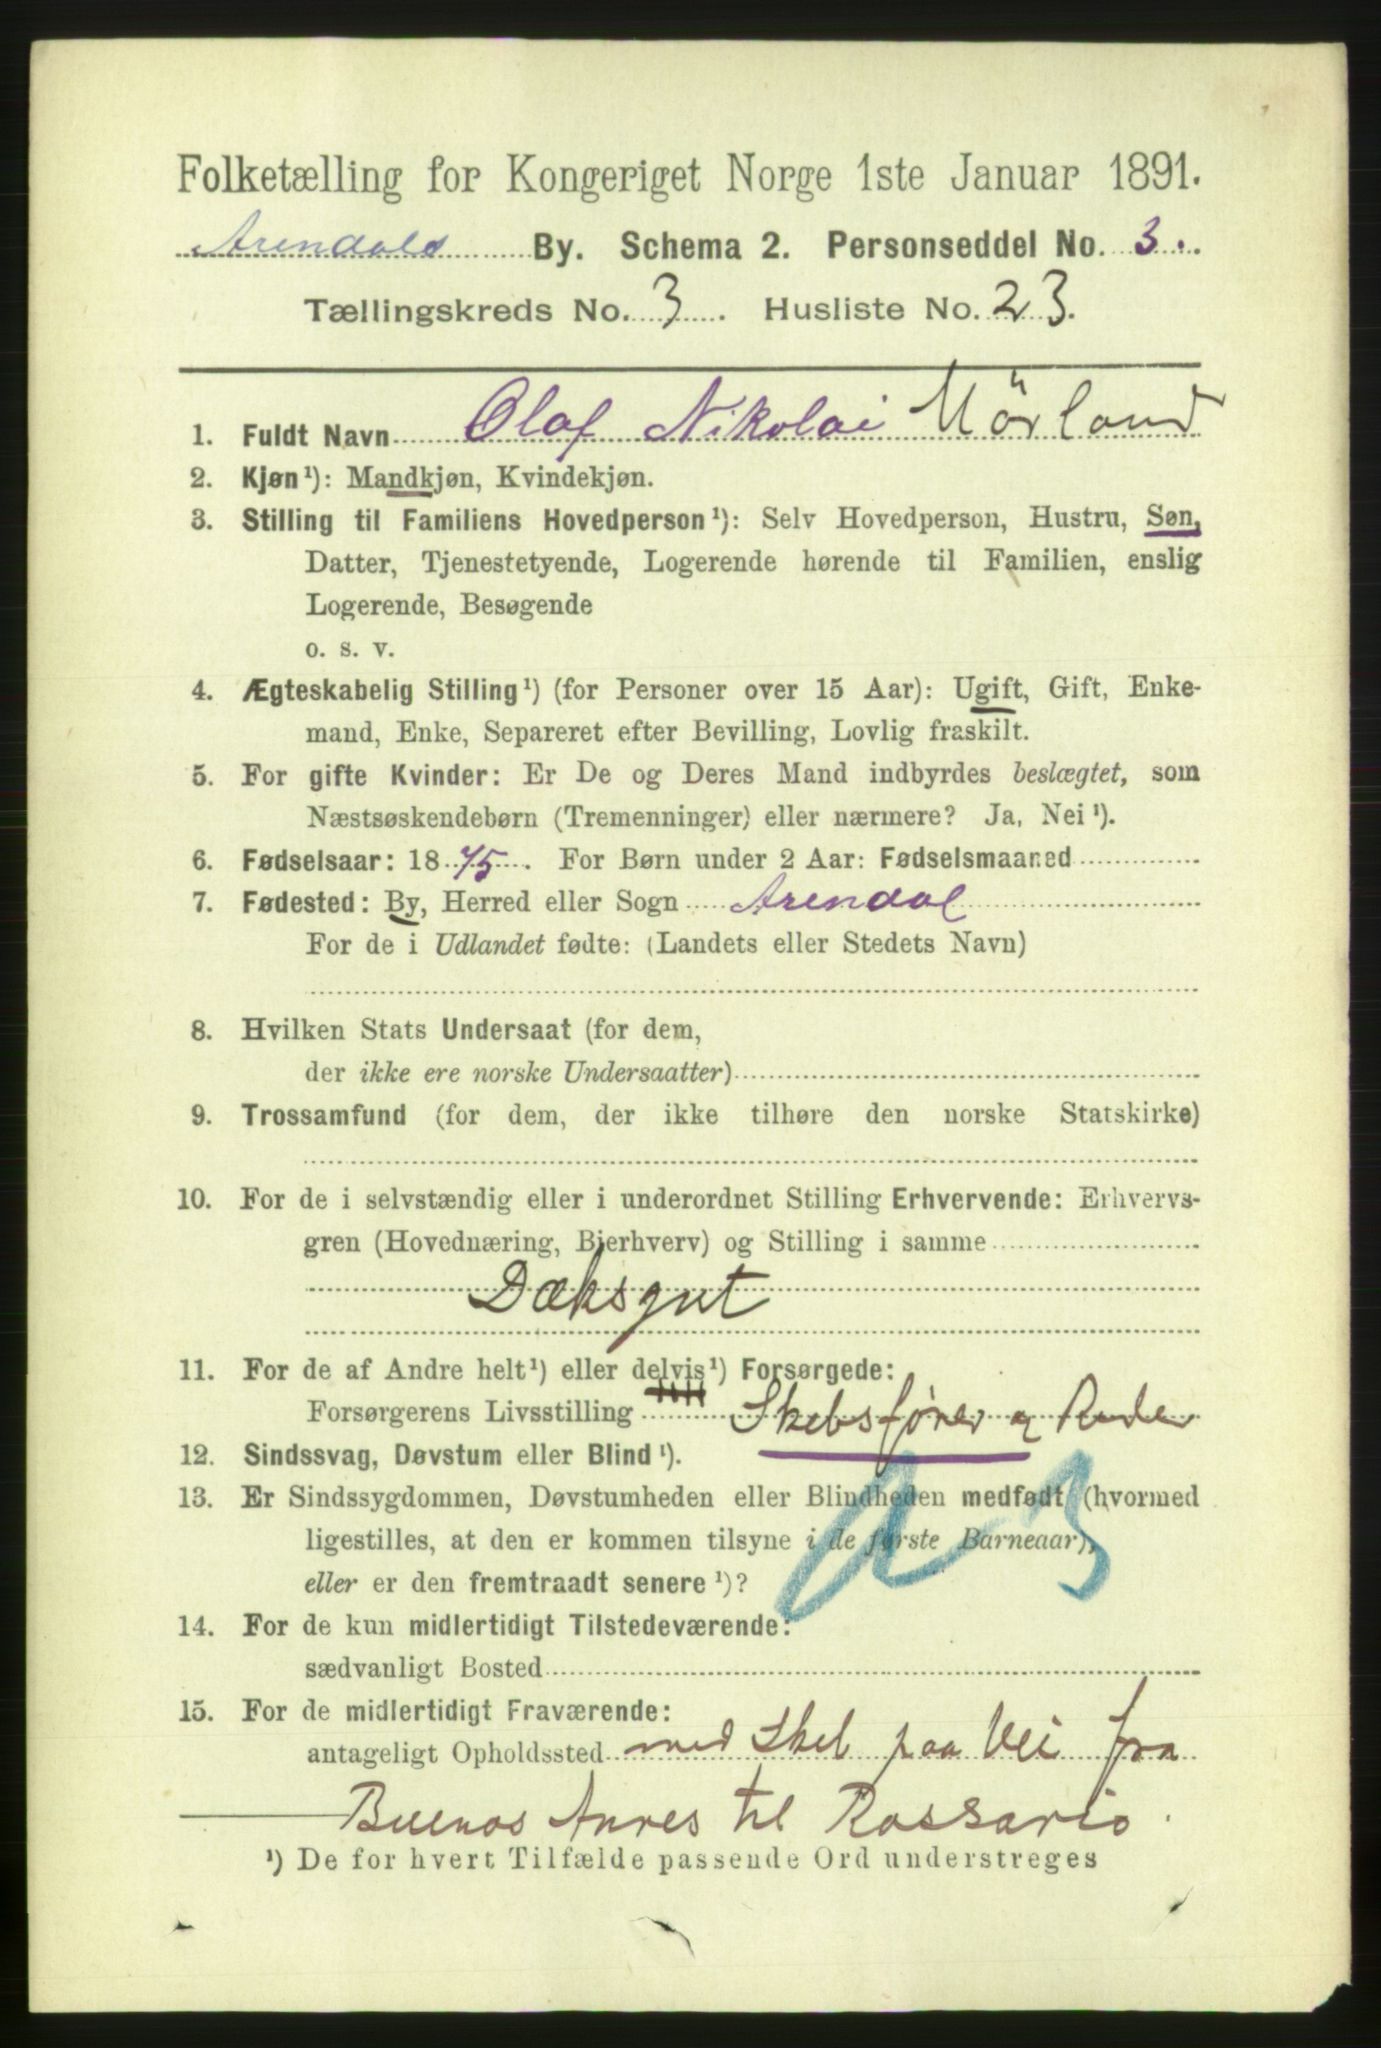 Folketælling for Kongeriget Norge 1ste Januar 1891.
Arendals By. Schema 2. Personseddel No. 3.
Tællingskreds No. 3. Husliste No. 23.
1. Fuldt Navn Olaf Nikolai Mörland
2. Kjøn¹): Mandkjøn, Kvindekjøn.
3. Stilling til Familiens Hovedperson¹): Selv Hovedperson, Hustru, Søn,
Datter, Tjenestetyende, Logerende hørende til Familien, enslig
Logerende, Besøgende
o. s. v.
4. Ægteskabelig Stilling¹) (for Personer over 15 Aar): Ugift, Gift, Enke-
mand, Enke, Separeret efter Bevilling, Lovlig fraskilt.
5. For gifte Kvinder: Er De og Deres Mand indbyrdes beslægtet, som
Næstsøskendebørn (Tremenninger) eller nærmere? Ja, Nei¹).
6. Fødselsaar: 1875. For Børn under 2 Aar: Fødselsmaaned
7. Fødested: By, Herred eller Sogn Arendal
For de i Udlandet fødte: (Landets eller Stedets Navn)
8. Hvilken Stats Undersaat (for dem,
der ikke ere norske Undersaatter)
9. Trossamfund (for dem, der ikke tilhøre den norske Statskirke)
10. For de i selvstændig eller i underordnet Stilling Erhvervende: Erhvervs-
gren (Hovednæring, Bierhverv) og Stilling i samme
Dæksgut
11. For de af Andre helt¹) eller delvis¹) Forsørgede:
Forsørgerens Livsstilling Skebsfører og Reder
12. Sindssvag, Døvstum eller Blind¹).
13. Er Sindssygdommen, Døvstumheden eller Blindheden medfødt (hvormed
ligestilles, at den er kommen tilsyne i de første Barneaar),
eller er den fremtraadt senere¹)?
14. For de kun midlertidigt Tilstedeværende:
sædvanligt Bosted
15. For de midlertidigt Fraværende:
antageligt Opholdssted med Skeb paa Vei fra
Buenos Anres til Rossario.
¹) De for hvert Tilfælde passende Ord understreges